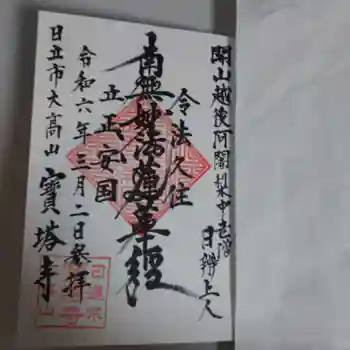 開山越後阿闍梨中老僧
日辨上人
令法久住
南無妙法蓮華経
立正安国
令和六年三月二日参拝
日立市大高山 寶塔寺